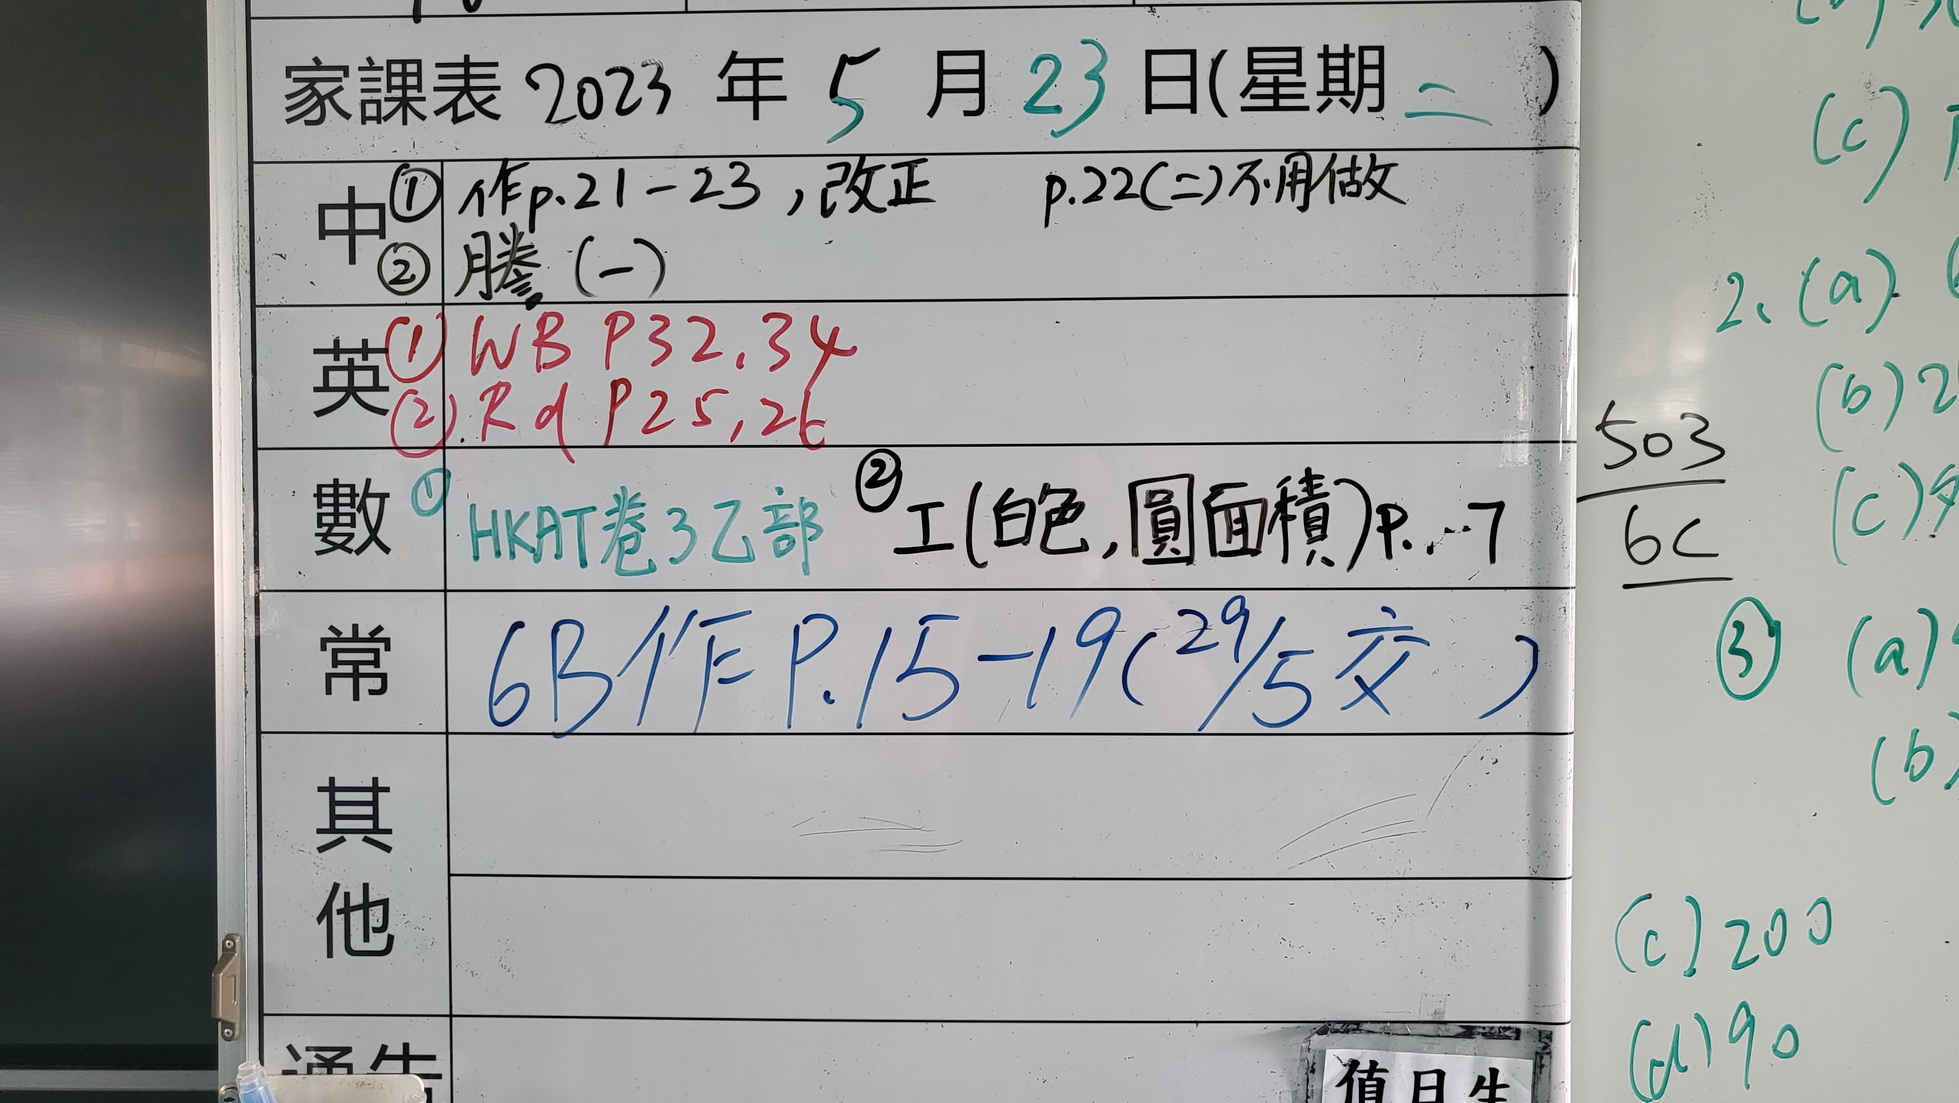 家課表 2023 年 5 月 23 日(星期二)
中 ① 作p.21-23,改正 p.22(二)不用做
② 謄(一)
英 (1) WB P32.34
(2). Rd P25,26
數 ① HKAT卷3乙部 ② 工(白色,圓面積)P...-7
常 6B作P.15-19(29/5交)
其他
通告
值日生
503
6C
(c)
2.(a)
(b)2
(c)
③ (a)
(b)
(c)200
(d)90